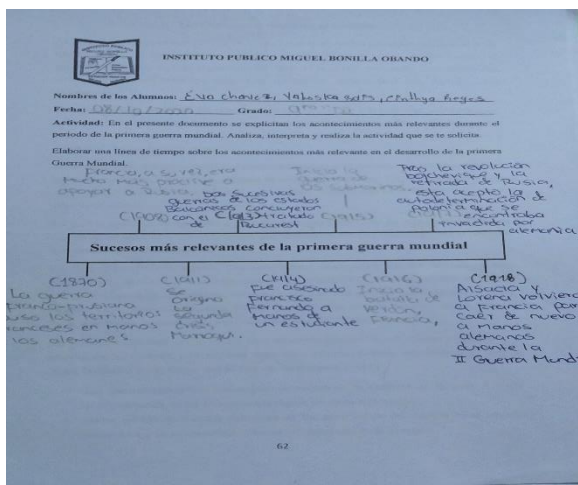 INSTITUTO PUBLICO MIGUEL BONILLA OBANDO
Nombres de los Alumnos: Eva Chavez, Yahoska Solis, Cinthya Reyes
Fecha: 08/10/2020 Grado:
Actividad: En el presente documento se explicitan los acontecimientos más relevantes durante el
periodo de la primera guerra mundial. Analiza, interpreta y realiza la actividad que se te solicita.
Elaborar una línea de tiempo sobre los acontecimientos más relevante en el desarrollo de la primera
Guerra Mundial.
Francia, a su vez, era
mucho más proclive a
apoyar a Rusia.
(1908)
Dos sucesivas
guerras de los estados
Balcanicos concluyeron
con el (1913) tratado
de Bucarest
Inicia la
guerra de
los submarinos
(1915)
Tras la revolución
bolchevique y la
retirada de Rusia,
esta acepto la
autodeterminación de
polonia que se
encontraba
invadida por
alemania
Sucesos más relevantes de la primera guerra mundial
(1870)
La guerra
Franco-prusiana
puso los territorios
franceses en manos
los alemanes
(1911)
Se
origino
La
segunda
crisis
Marroquí.
(1914)
Fue asesinado
Francisco
Fernando a
Manos de
un estudiante
(1916)
Inicia la
batalla de
Verdún,
Francia,
(1918)
Alsacia y
Lorena volvieron
a Francia para
caer de nuevo
a manos
alemanas
durante la
II Guerra Mund
62